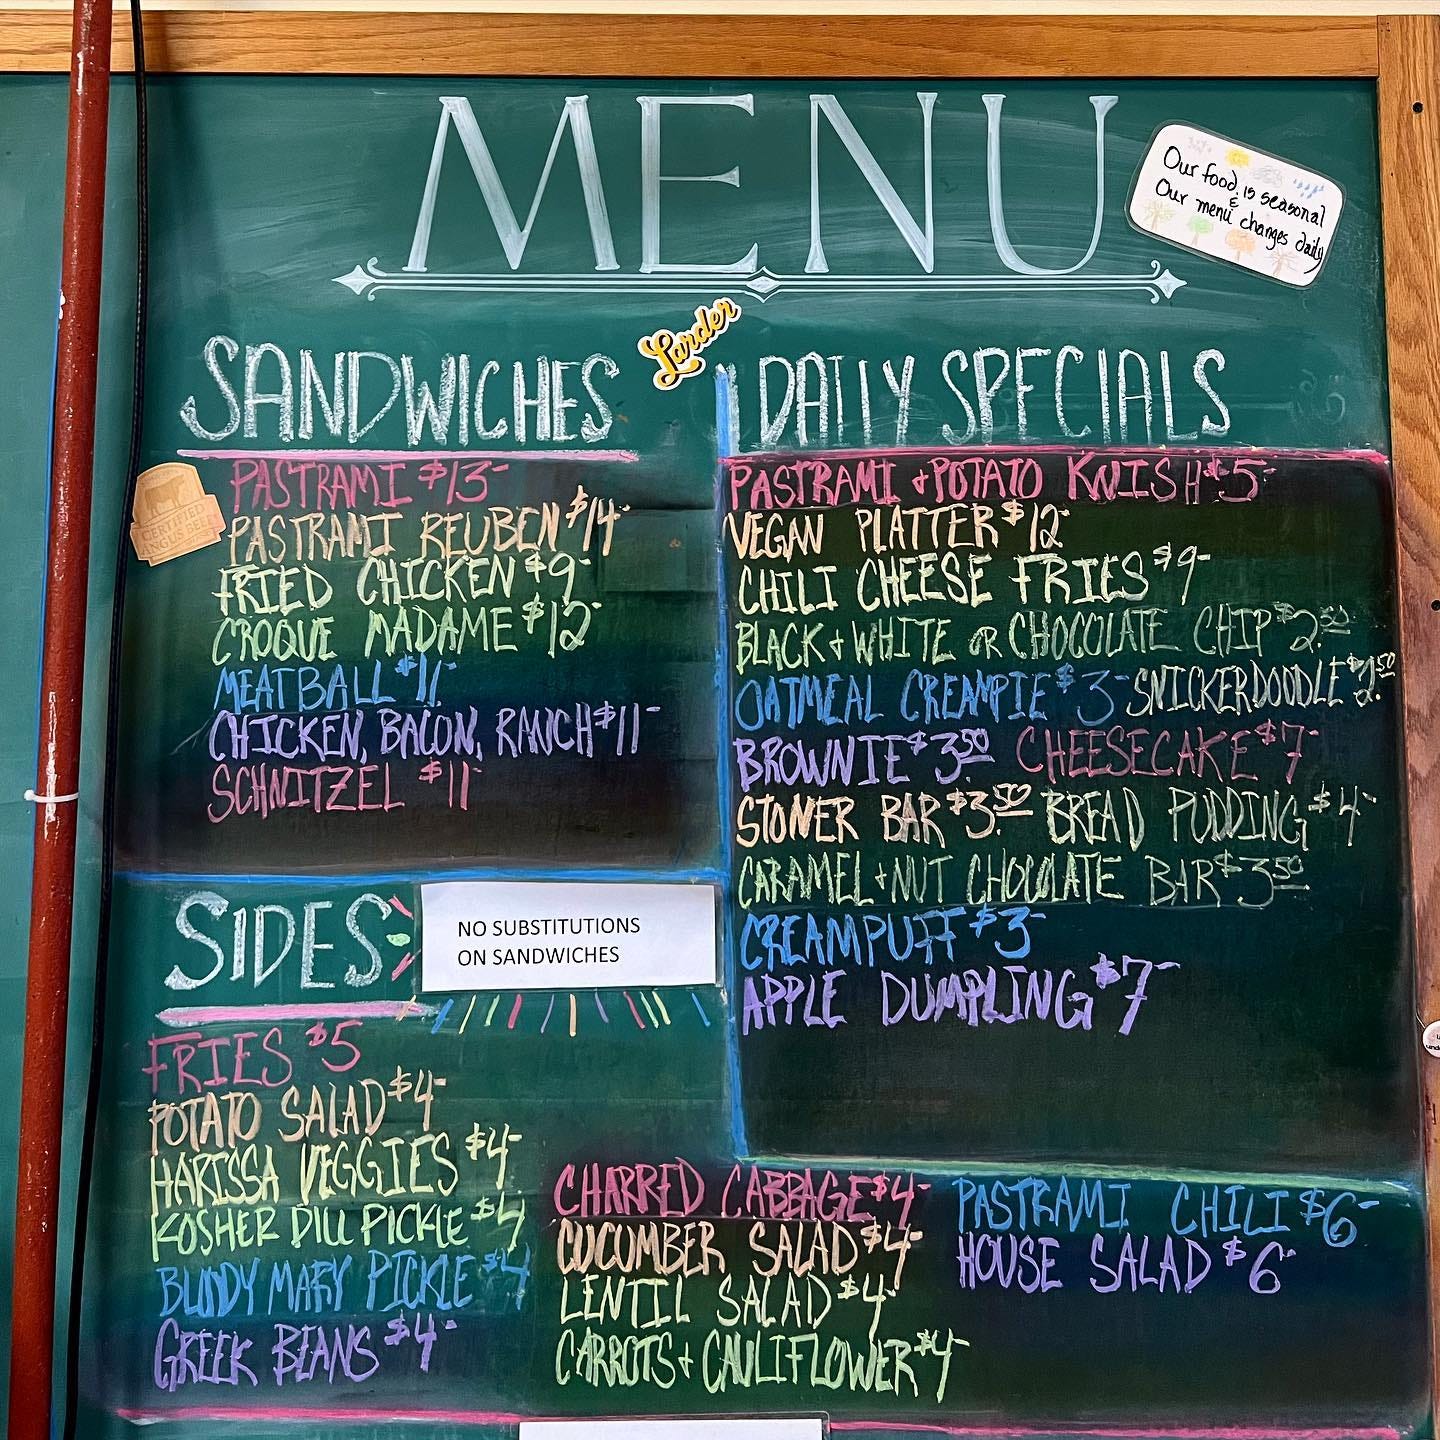 MENU
Our food is seasonal
&
Our menu changes daily
Larder
SANDWICHES
PASTRAMI $13-
PASTRAMI REUBEN $14-
FRIED CHICKEN $9-
CROQUE MADAME $12-
MEATBALL $11-
CHICKEN, BACON, RANCH $11-
SCHNITZEL $11-
CERTIFIED
ANGUS BEEF
DAILY SPECIALS
PASTRAMI + POTATO KNISH $5-
VEGAN PLATTER $12-
CHILI CHEESE FRIES $9-
BLACK + WHITE OR CHOCOLATE CHIP $2.50
OATMEAL CREAMPIE $3- SNICKERDOODLE $2.50
BROWNIE $3.50 CHEESECAKE $7-
STONER BAR $3.50 BREAD PUDDING $4-
CARAMEL + NUT CHOCOLATE BAR $3.50
CREAMPUFF $3-
APPLE DUMPLING $7-
SIDES
NO SUBSTITUTIONS
ON SANDWICHES
FRIES $5
POTATO SALAD $4-
HARISSA VEGGIES $4-
KOSHER DILL PICKLE $4
BLOODY MARY PICKLE $4
GREEK BEANS $4-
CHARRED CABBAGE $4-
CUCUMBER SALAD $4-
LENTIL SALAD $4-
CARROTS + CAULIFLOWER $4-
PASTRAMI CHILI $6-
HOUSE SALAD $6-